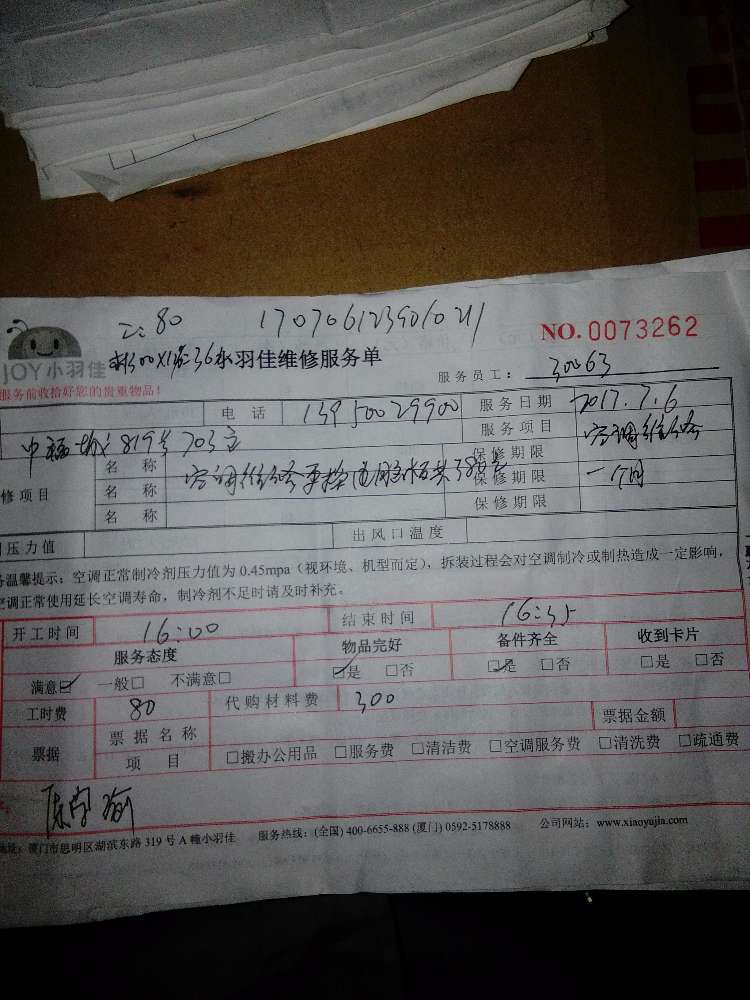 工:80 170706123901021
NO. 0073262
JOY小羽佳 羽佳维修服务单
服务员工: 30063
服务前收拾好您的贵重物品!
电 话 13950029900 服务日期 2017.7.6
中福城819号703室 服务项目 空调维修
名 称 空调维修 共380元 保修期限 一个月
修项目 名 称 保修期限
名 称 保修期限
压力值 出风口温度
温馨提示:空调正常制冷剂压力值为 0.45mpa(视环境、机型而定),拆装过程会对空调制冷或制热造成一定影响,
调正常使用延长空调寿命,制冷剂不足时请及时补充。
开工时间 16:00 结束时间 16:35
服务态度 物品完好 备件齐全 收到卡片
满意☑ 一般□ 不满意□ ☑是 □否 ☑是 □否 □是 □否
工时费 80 代购材料费 300
票据 票据名称 票据金额
项 目 □搬办公用品 □服务费 □清洁费 □空调服务费 □清洗费 □疏通费
地址:厦门市思明区湖滨东路 319 号 A 幢小羽佳 服务热线:(全国) 400-6655-888 (厦门) 0592-5178888 公司网站:www.xiaoyujia.com